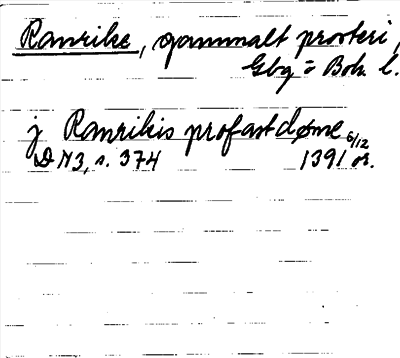 Ranrike, gammalt prosteri,
Gbg o Boh. l.
j Ranrikis profastdøme
DN 3, s. 374 6/12 1391 or.